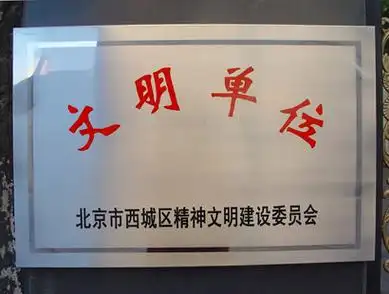 文明单位
北京市西城区精神文明建设委员会